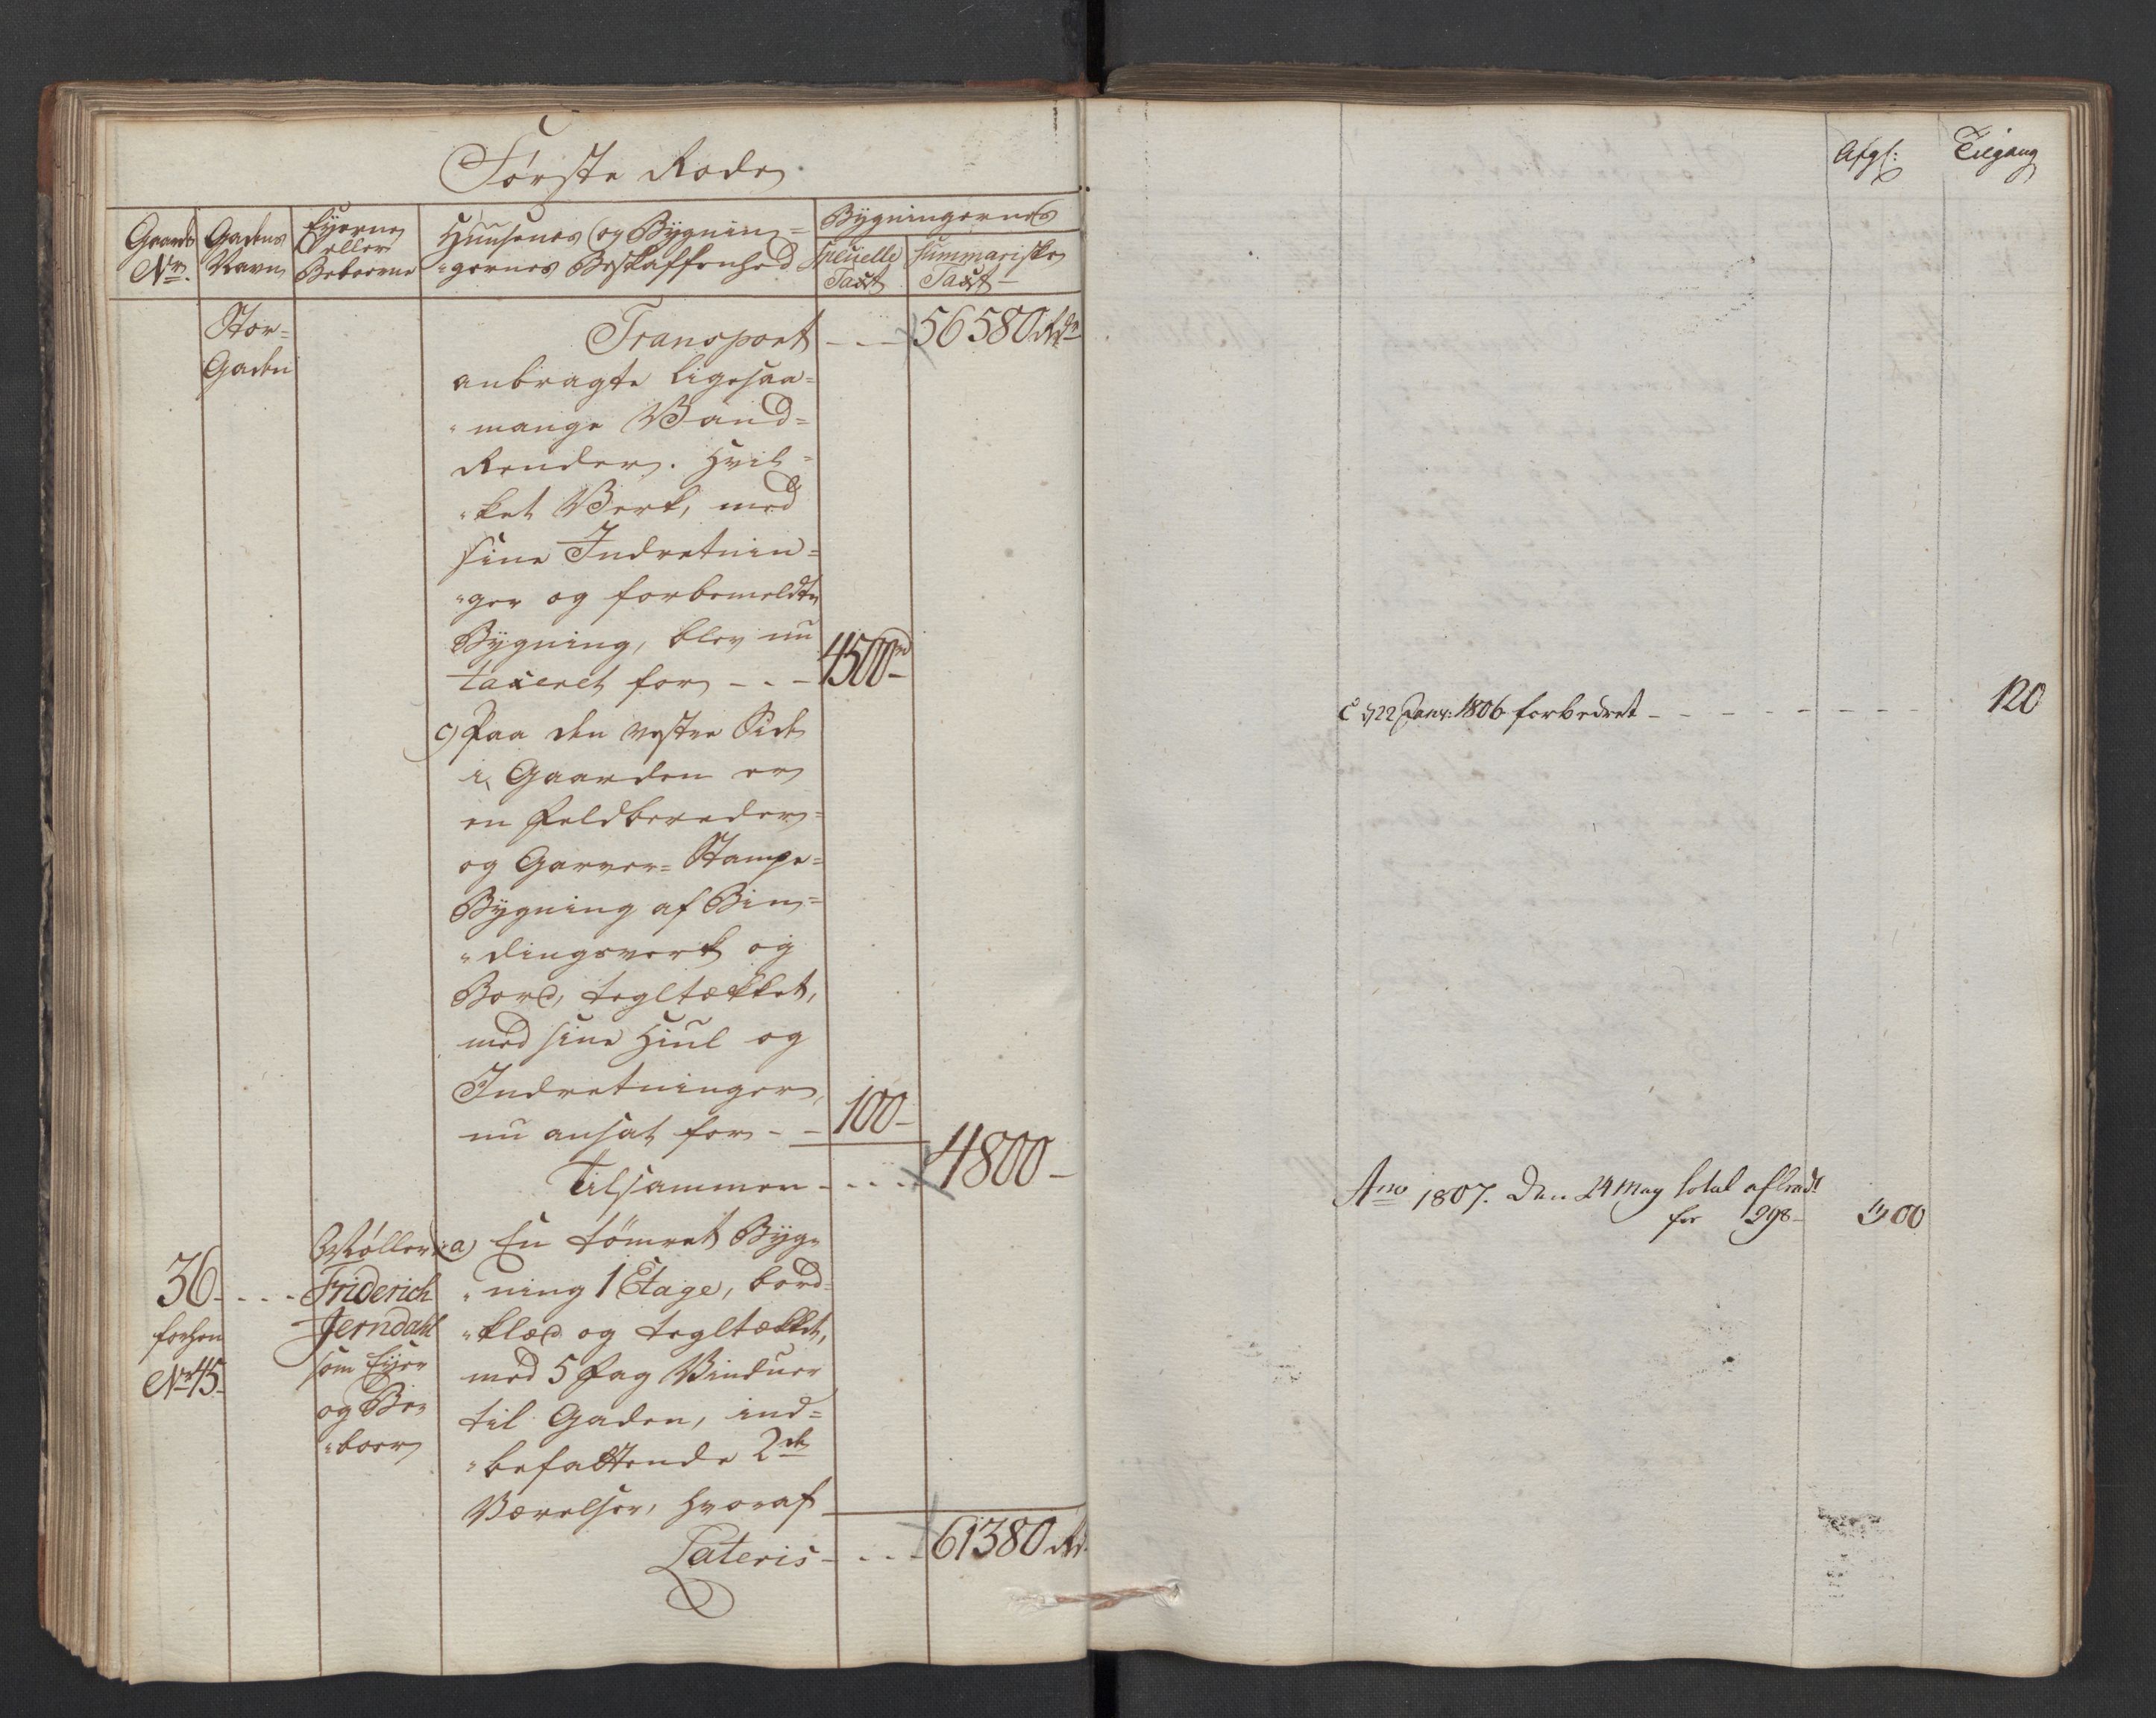 Første Rode
Gaards No.
Gadens Navn
Eyerne eller Beboerne
Huusenes og Bygnin=
"gernes Beskaffenhed
Bygningernes
specielle Taxt
summariske Taxt
Stor=
Gaden
Transport - - - 56580 Rdr
anbragte ligesaa=
"mange Vand=
Render. Hvil=
"ket Verk, med
sine Indretnin=
"ger og forbemeldte
Bygning, blev nu
taxeret for - - - 4500 rd -
c) Paa den vestre Side
i Gaarden er
en Feldbereder=
og Garver= Stampe=
Bygning af Bin=
"dingsverk og
Bord, tegltækket,
med sine Hiul og
Indretninger,
nu ansat for - - 100 -
Tilsammen - - - - 4800 -
36 - - - -
forhen
No 45.
Møller
Friderich
Jerndahl
som Eyer
og Be=
"boer
a) En tömret Byg=
"ning 1 Etage, bord=
"klæd og tegltækket,
med 5 Fag Vinduer
til Gaden, ind=
"befattende 2de
Værelser, hvoraf
Lateris - - - - 61380 Rd
Afg:
Tilgang
C d 22 Janr: 1806 forbedret - - - - - - - - 120
Ano 1807. Den 24 May total afbrendt
for 298 -